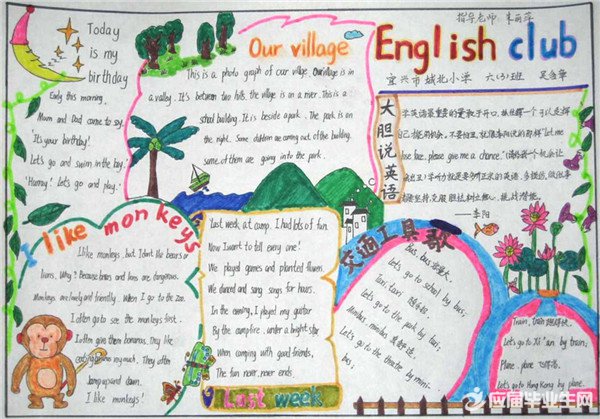 Today
is my
birthday
Early this morning,
Mum and Dad come to say.
"It's your birthday!
Let's go and swim in the bay."
"Hurray! Let's go and play."
Our village
This is a photo graph of our village. Our village is in
a valley. It's between two hills. the village is on a river. This is a
school building. It's is beside a park. The park is on
the right. Some children are coming out of the building.
some of them are going into the park.
指导老师
English club
宜兴市城北小学 六(3)班
大胆说英语
学英语最重要的是敢于开口,
"let me
lose face, please give me a chance."
——李阳
I like monkeys
I like monkeys, but I don't like bears or
lions, Why? Because bears and lions are dangerous.
Monkeys are lovely and friendly. When I go to the Zoo.
I often go to see the monkeys first.
I often give them bananas. They like
eating bananas very much. They often
jump up and down.
I like monkeys!
Last week, at camp, I had lots of fun.
Now I want to tell every one!
We played games and planted flowers.
We danced and sang songs for hours.
In the evening, I played my guitar
By the campfire, under a bright star
When camping with good friends,
The fun never, never ends
Last week
交通工具歌
Bus, bus
Let's go to school by bus;
Taxi, taxi
Let's go to the park by taxi;
Minibus, minibus
Let's go to the theatre by mini-
bus;
Train, train
Let's go to Xi'an by train;
Plane, plane
Let's go to Hong Kong by plane.
应届毕业生网